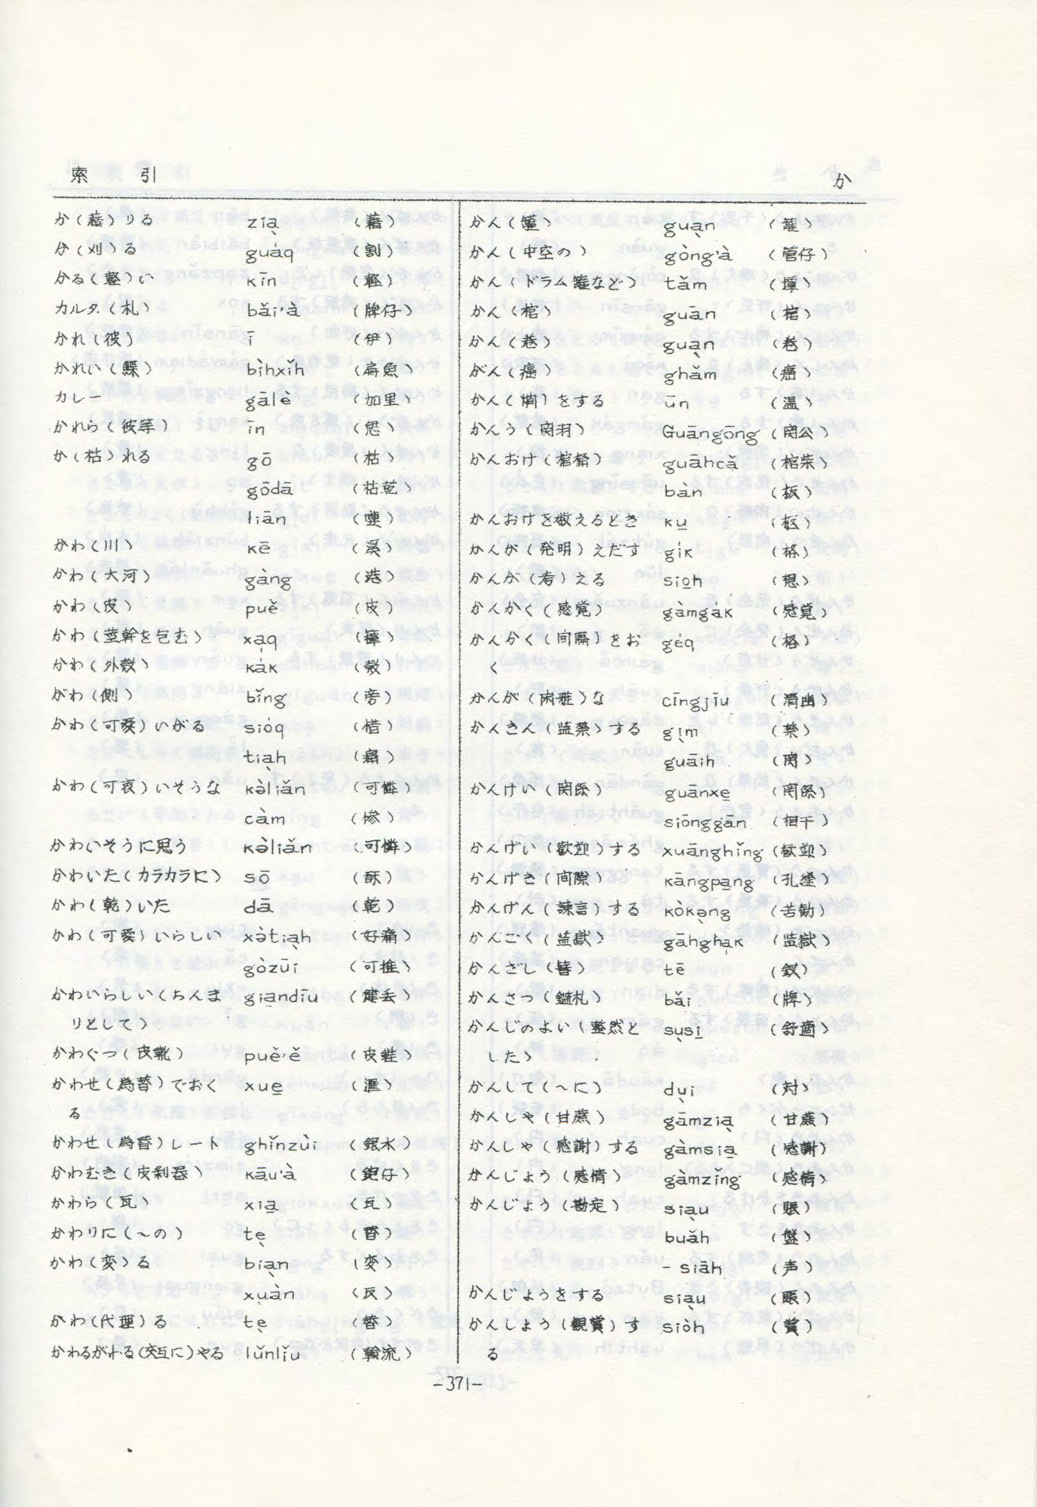 索 引
か
か(藉)りる ziạ (藉)
か(刈)る guáq (割)
かる(軽)い kīn (軽)
カルタ(札) bǎi·à (牌仔)
かれ(彼) ī (伊)
かれい(鰈) bìhxǐh (扁魚)
カレー gālè (加里)
かれら(彼等) īn (怹)
か(枯)れる gō (枯)
gōdā (枯乾)
liān
かわ(川) kē (渓)
かわ(大河) gàng (港)
かわ(皮) puě (皮)
かわ(茎幹を包む) kạq (籜)
かわ(外殻) kák (殻)
がわ(側) bǐng (旁)
かわ(可愛)いがる sióq (惜)
tiạh (痛)
かわ(可哀)いそうな kəliǎn (可憐)
càm (惨)
かわいそうに思う kəliǎn (可憐)
かわいた(カラカラに) sō (酥)
かわ(乾)いた dā (乾)
かわ(可愛)いらしい xətiạh (好痛)
gòzūi (可推)
かわいらしい(ちんま giạndīu (健丟)
りとして)
かわぐつ(皮靴) puě·ě (皮鞋)
かわせ(為替)でおく xue̱ (滙)
る
かわせ(為替)レート ghǐnzùi (銀水)
かわむき(皮剥器) kāu·à (鉋仔)
かわら(瓦) xia̱ (瓦)
かわりに(～の) tẹ (替)
かわ(変)る biạn (変)
xuàn (反)
かわ(代理)る tẹ (替)
かわるがわる(交互に)やる lǔnlǐu (輪流)
かん(罐) guạn (罐)
かん(中空の) gòng·à (管仔)
かん(ドラム罐など) tǎm (壜)
かん(棺) guān (棺)
かん(巻) guạn (巻)
がん(癌) ghǎm (癌)
かん(燗)をする ūn (温)
かんう(関羽) Guāngōng (関公)
かんおけ(棺桶) guāhcǎ (棺柴)
bàn (板)
かんおけを数えるとき ku̱ (柩)
かんが(発明)えだす gík
かんが(考)える sio̱h (想)
かんかく(感覚) gàmgák (感覚)
かんかく(間隔)をお géq (格)
く
かんが(閑雅)な cīngjīu (清幽)
かんきん(監禁)する gịm (禁)
guāih (関)
かんけい(関係) guānxe̱ (関係)
siōnggān (相干)
かんげい(歓迎)する xuānghǐng (歓迎)
かんげき(間隙) kāngpa̱ng (孔縫)
かんげん(諫言)する kòkə̣ng (苦勧)
かんごく(監獄) gāhghạk (監獄)
かんざし(簪) tē (釵)
かんさつ(鑑札) bǎi (牌)
かんじのよい(整然と sụsi̱ (舒適)
した)
かんして(～に) dụi (対)
かんしゃ(甘蔗) gāmziạ (甘蔗)
かんしゃ(感謝)する gàmsia̱ (感謝)
かんじょう(感情) gàmzǐng (感情)
かんじょう(勘定) siạu (賬)
buǎh (盤)
-siāh (声)
かんじょうをする siạu (賬)
かんしょう(観賞)す siòh (賞)
る
-371-